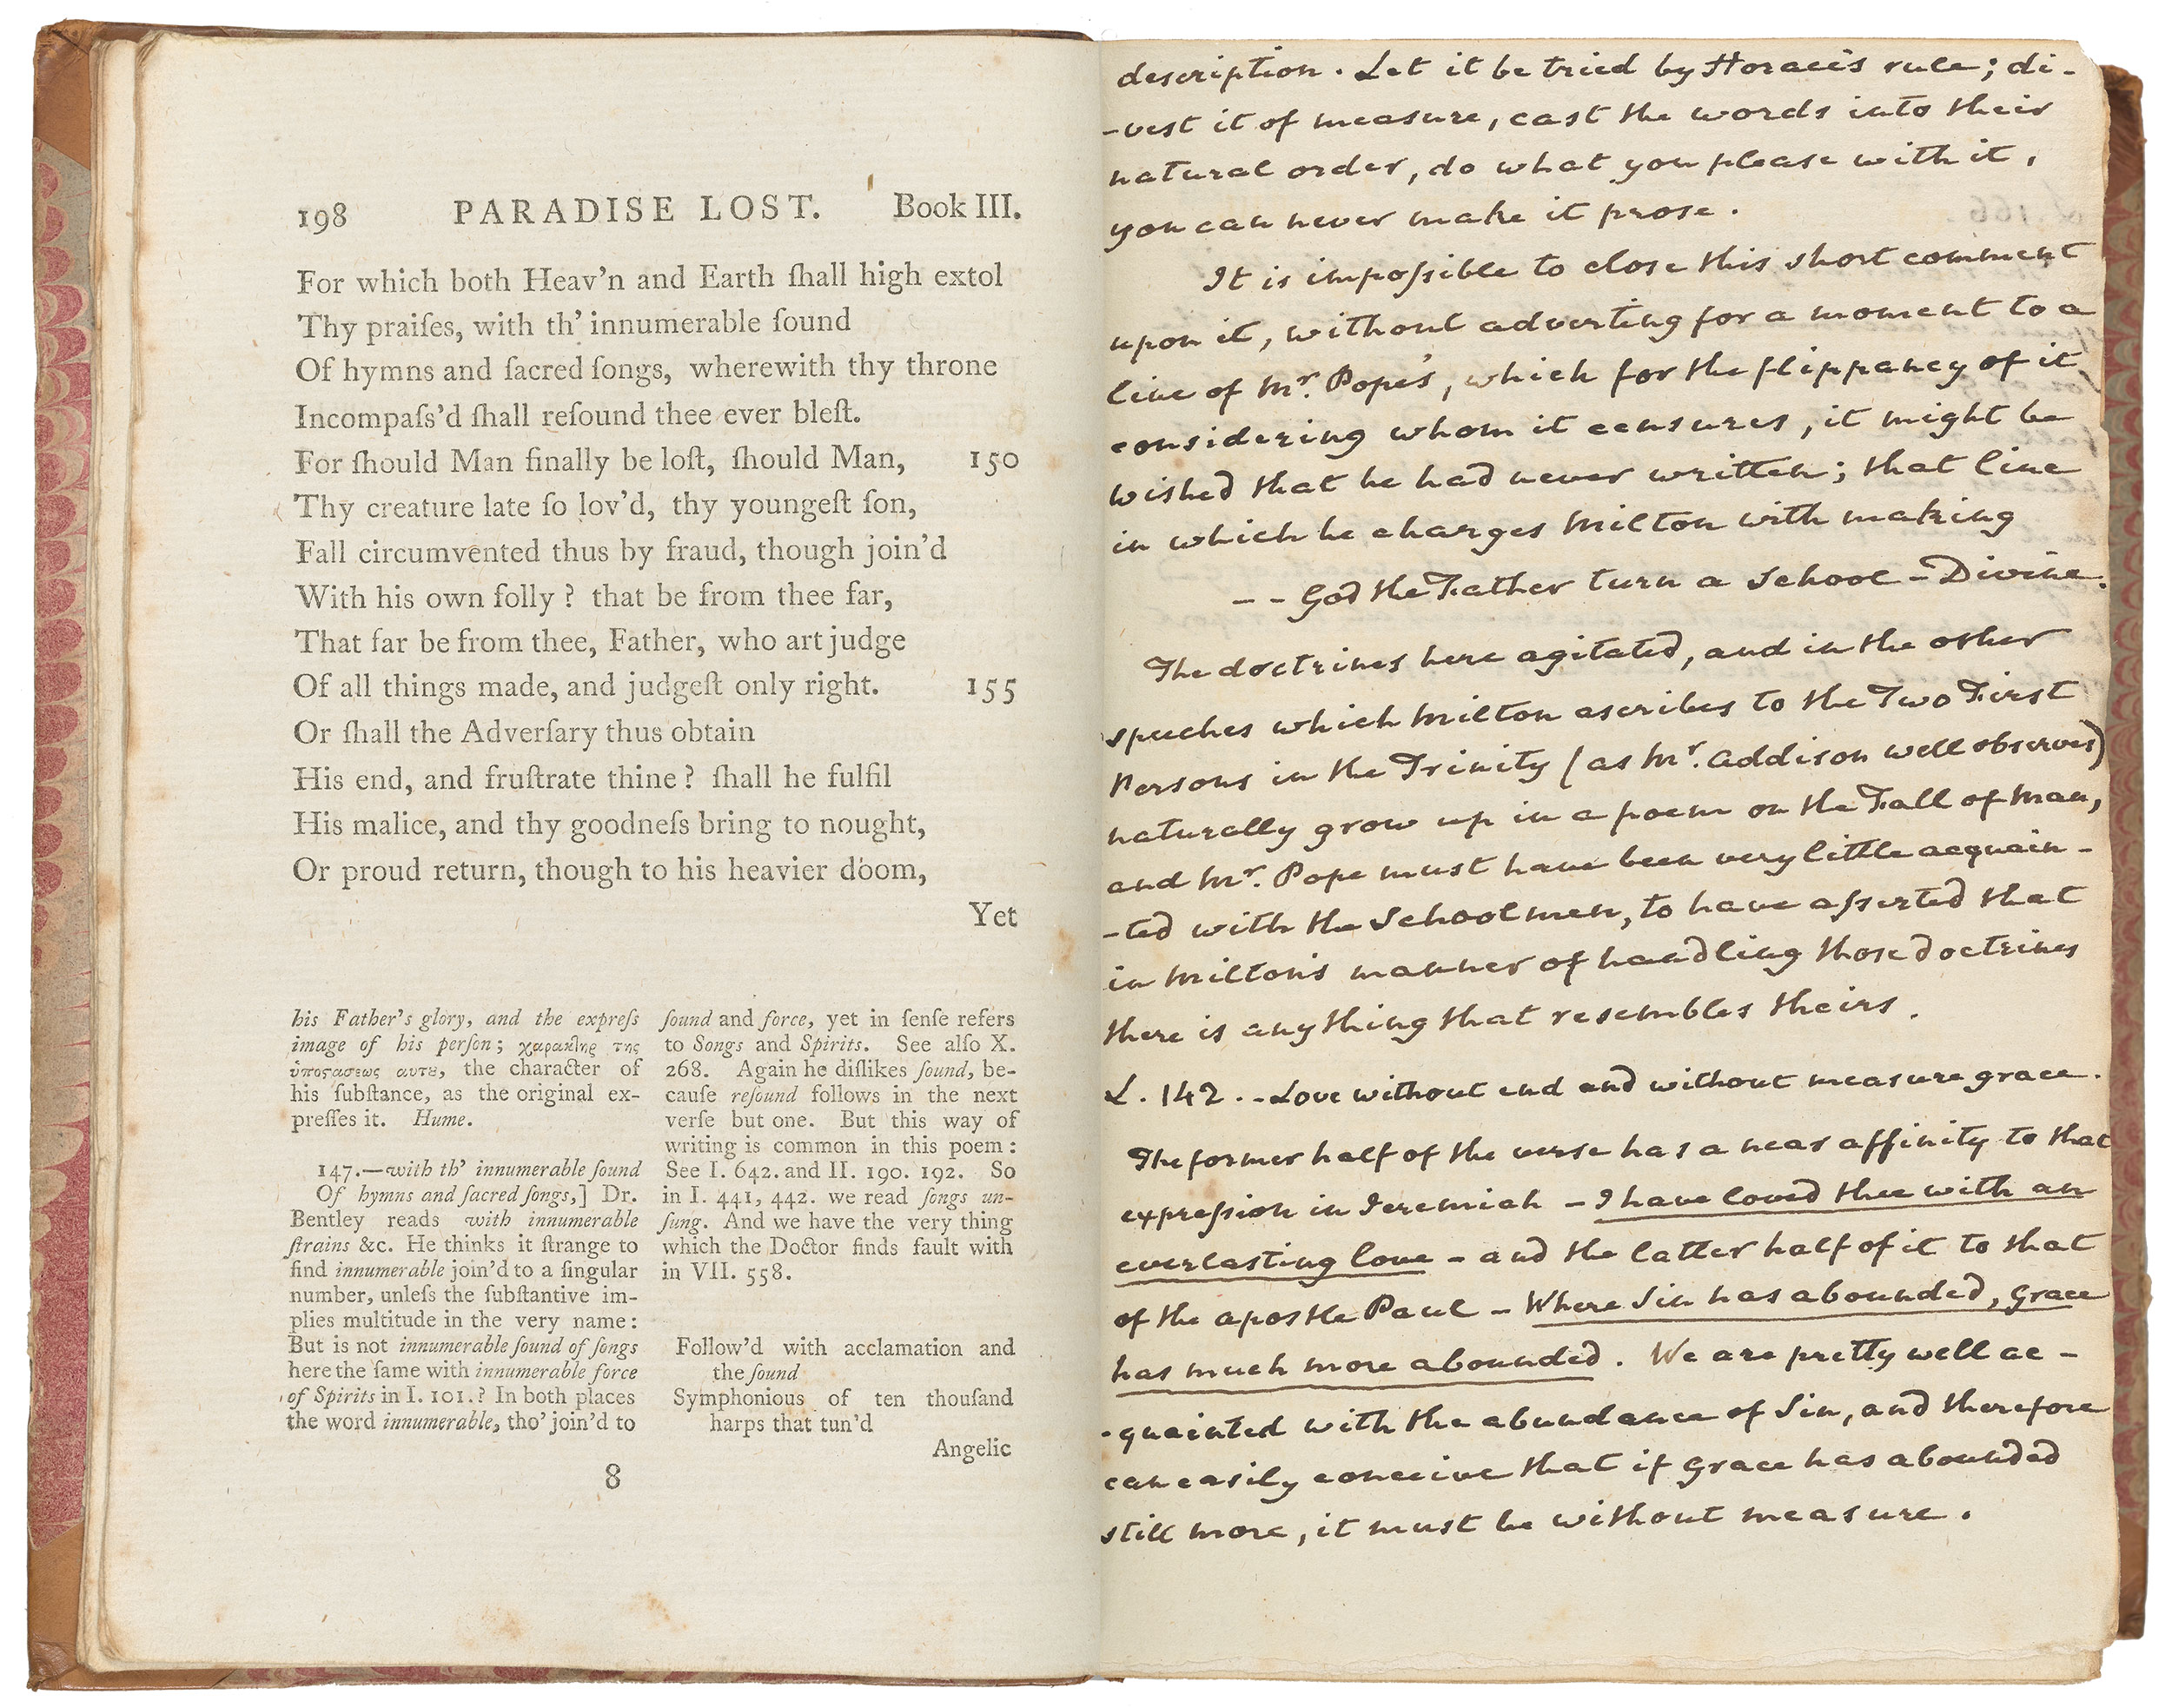 198 PARADISE LOST. Book III.
For which both Heav'n and Earth ſhall high extol
Thy praiſes, with th' innumerable ſound
Of hymns and ſacred ſongs, wherewith thy throne
Incompaſs'd ſhall reſound thee ever bleſt.
For ſhould Man finally be loſt, ſhould Man, 150
Thy creature late ſo lov'd, thy youngeſt ſon,
Fall circumvented thus by fraud, though join'd
With his own folly? that be from thee far,
That far be from thee, Father, who art judge
Of all things made, and judgeſt only right. 155
Or ſhall the Adverſary thus obtain
His end, and fruſtrate thine? ſhall he fulfil
His malice, and thy goodneſs bring to nought,
Or proud return, though to his heavier doom,
Yet
his Father's glory, and the expreſs
image of his perſon; χαρακτηρ της
ὑποςασεως αυτȣ, the character of
his ſubſtance, as the original ex-
preſſes it. Hume.
147.—with th' innumerable ſound
Of hymns and ſacred ſongs,] Dr.
Bentley reads with innumerable
ſtrains &c. He thinks it ſtrange to
find innumerable join'd to a ſingular
number, unleſs the ſubſtantive im-
plies multitude in the very name:
But is not innumerable ſound of ſongs
here the ſame with innumerable force
of Spirits in I. 101.? In both places
the word innumerable, tho' join'd to
ſound and force, yet in ſenſe refers
to Songs and Spirits. See alſo X.
268. Again he diſlikes ſound, be-
cauſe reſound follows in the next
verſe but one. But this way of
writing is common in this poem:
See I. 642. and II. 190. 192. So
in I. 441, 442. we read ſongs un-
ſung. And we have the very thing
which the Doctor finds fault with
in VII. 558.
Follow'd with acclamation and
the ſound
Symphonious of ten thouſand
harps that tun'd
Angelic
8
description. Let it be tried by Horace's rule; di-
-vest it of measure, cast the words into their
natural order, do what you please with it,
you can never make it prose.
It is impoſsible to close this short comment
upon it, without adverting for a moment to a
line of Mr. Pope's, which for the flippancy of it
considering whom it censures, it might be
wished that he had never written; that line
in which he charges Milton with making
-- God the Father turn a School-Divine.
The doctrines here agitated, and in the other
speeches which Milton ascribes to the Two First
Persons in the Trinity (as Mr. Addison well observes)
naturally grow up in a poem on the Fall of Man,
and Mr. Pope must have been very little acquain-
-ted with the Schoolmen, to have aſserted that
in Milton's manner of handling those doctrines
there is any thing that resembles theirs.
L. 142. - Love without end and without measure grace.
The former half of the verse has a near affinity to that
expreſsion in Jeremiah - I have loved thee with an
everlasting love - and the latter half of it to that
of the apostle Paul - Where Sin has abounded, Grace
has much more abounded. We are pretty well ac-
-quainted with the abundance of Sin, and therefore
can easily conceive that if Grace has abounded
still more, it must be without measure.